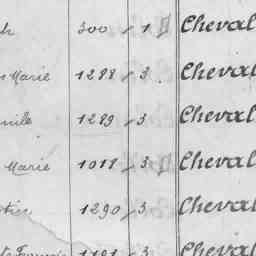 300 1 Cheval
Marie 1288 3 Cheval
1289 3 Cheval
Marie 1018 3 Cheval
1290 3 Cheval
3 Cheval